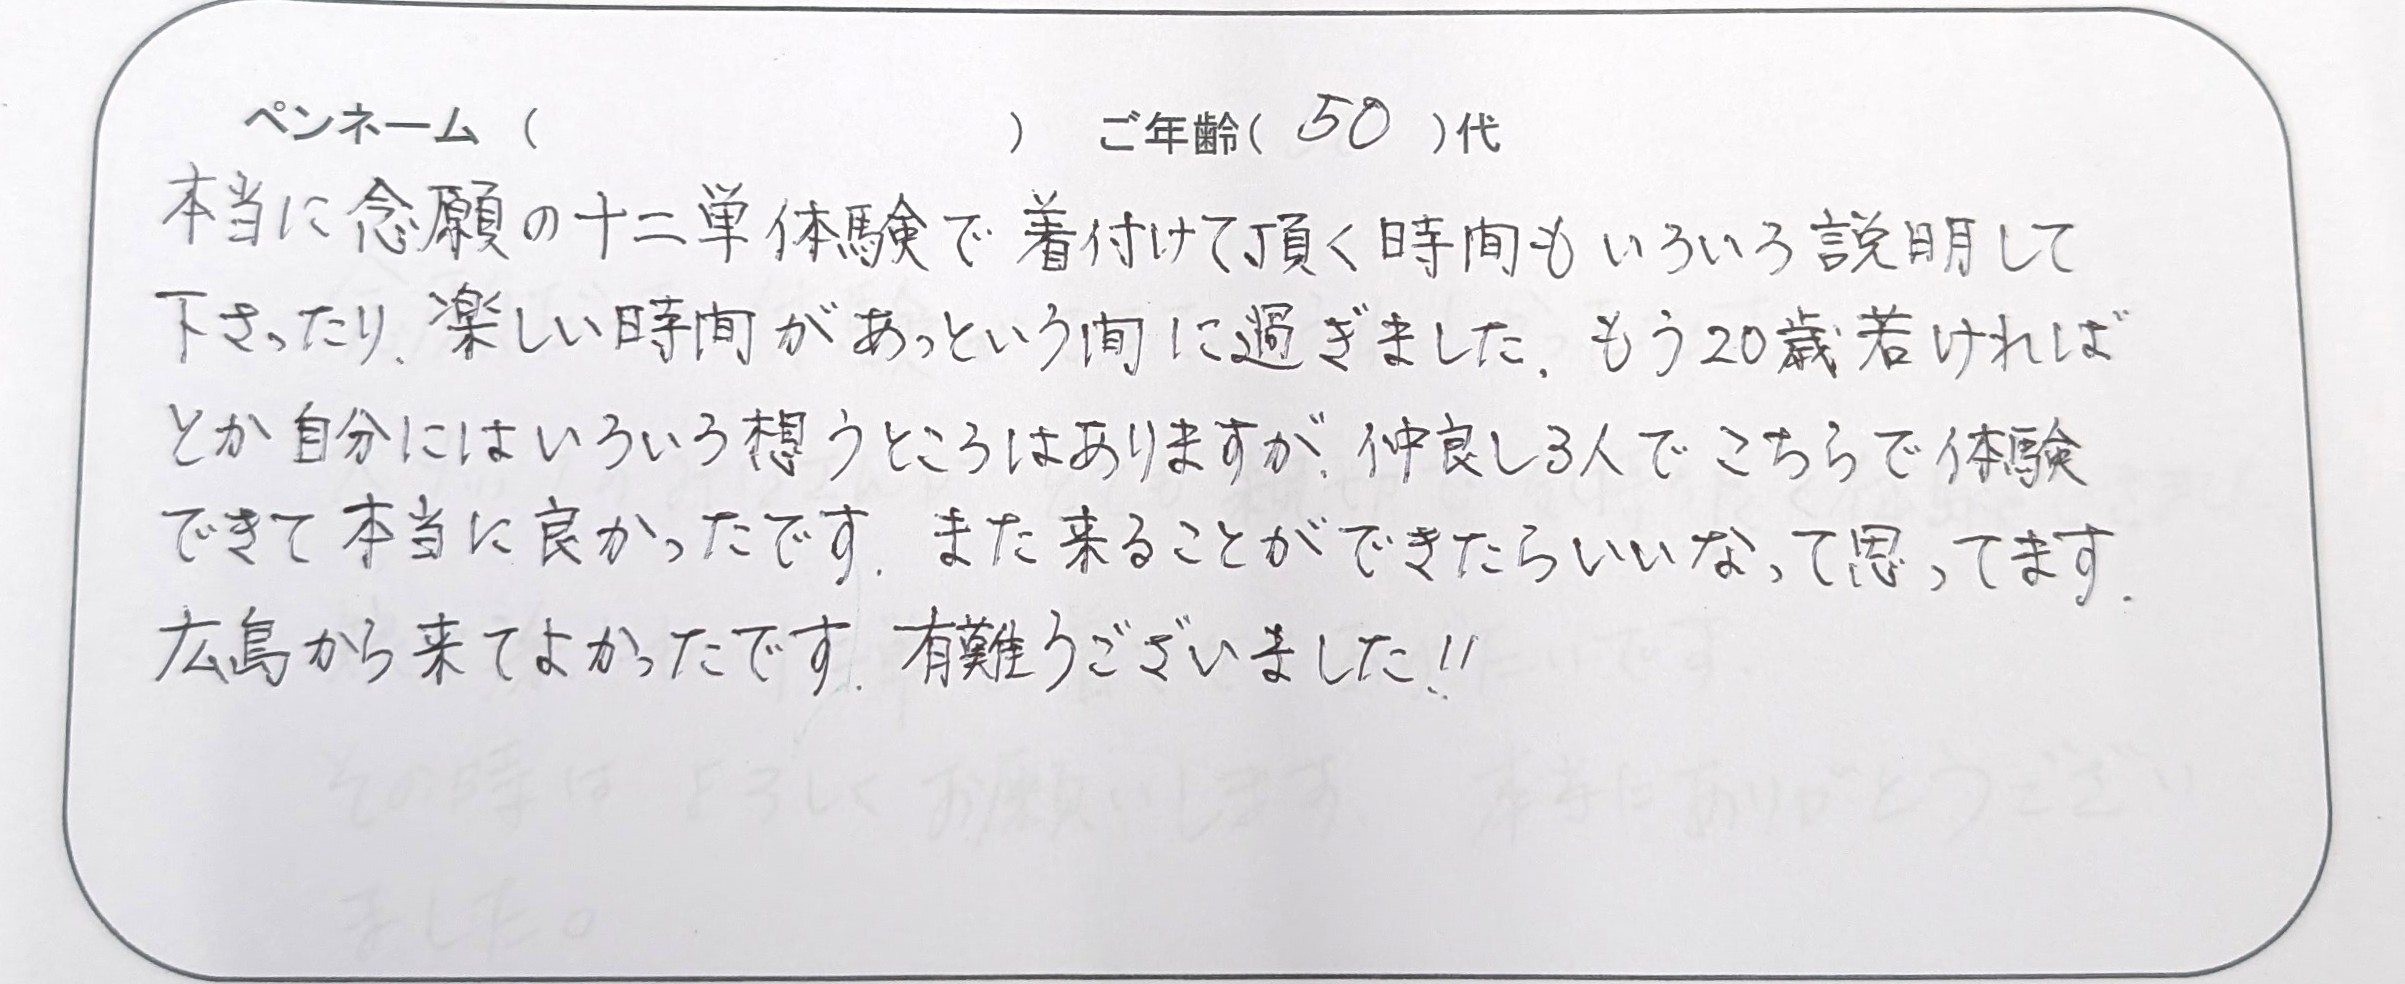 ペンネーム（　　　　　　）　ご年齢（ 50 ）代
本当に念願の十二単体験で着付けて頂く時間もいろいろ説明して
下さったり、楽しい時間があっという間に過ぎました. もう20歳若ければ
とか自分にはいろいろ想うところはありますが、仲良し3人でこちらで体験
できて本当に良かったです. また来ることができたらいいなって思ってます.
広島から来てよかったです. 有難うございました!!
その時は よろしくお願いします. 本当にありがとうござい
ました。